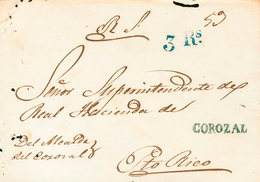 R. S. 59
3 Rs.
Señor Superintendente de
Real Hacienda de
COROZAL
Del Alcalde
del Corozal
Pto Rico